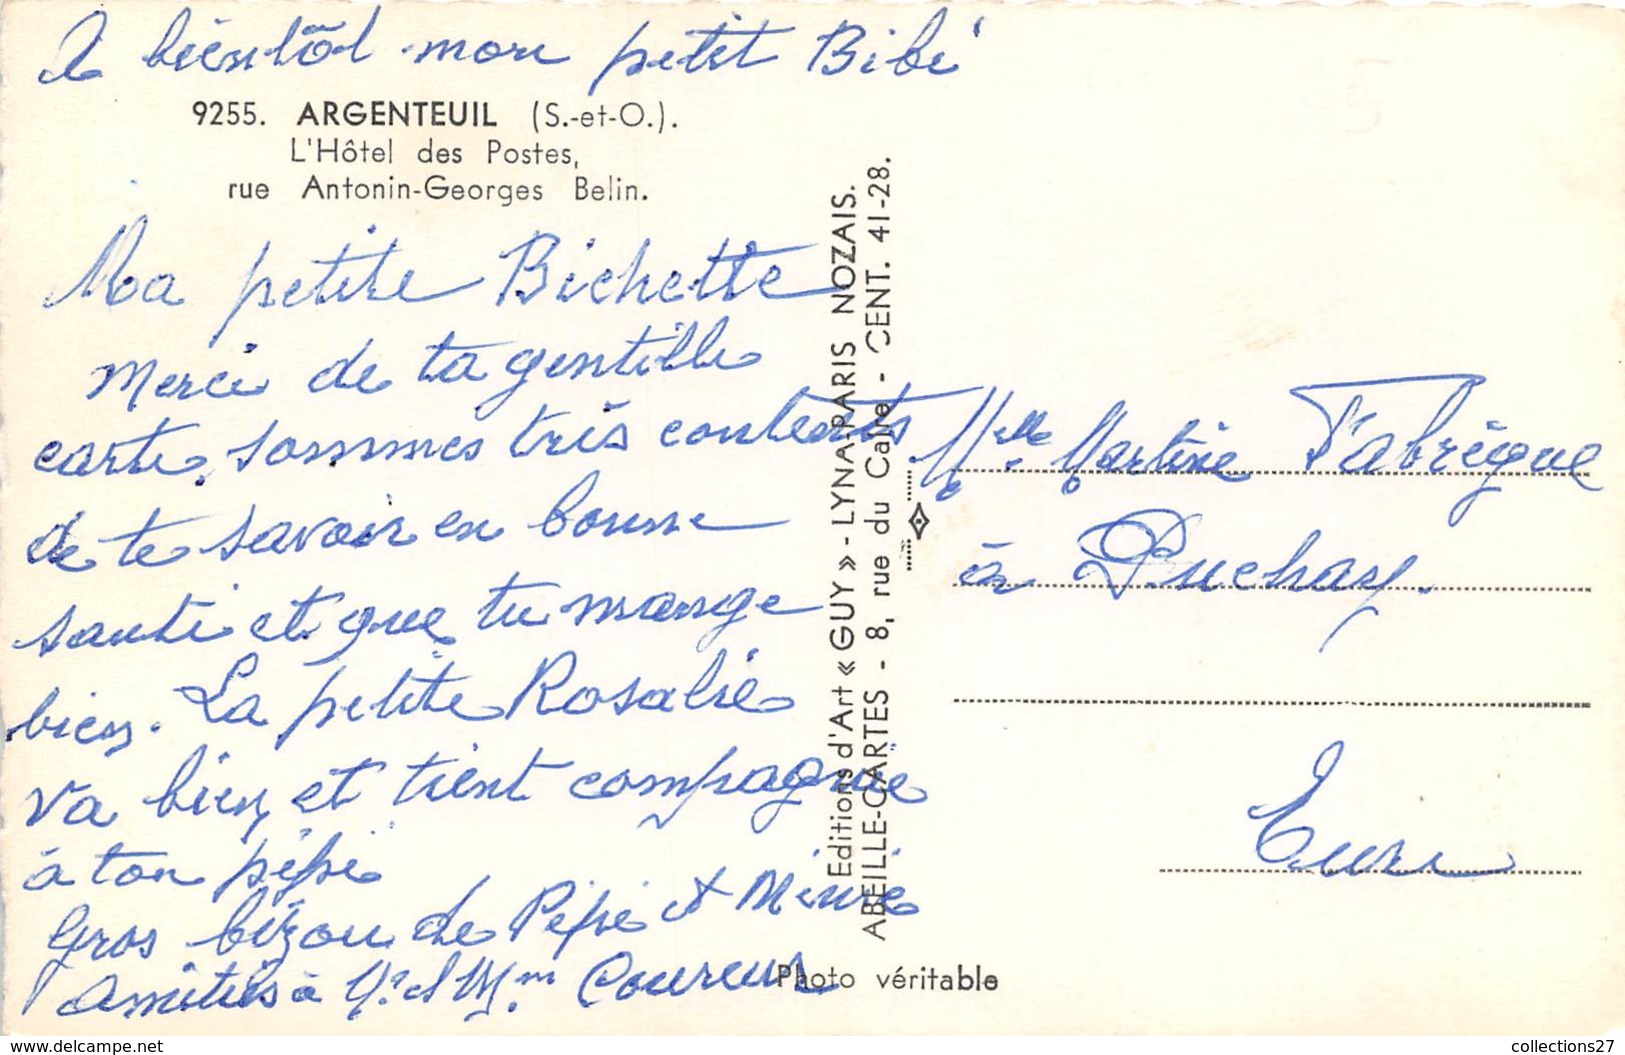 A bientôt mon petit Bibi
9255. ARGENTEUIL (S.-et-O.).
L'Hôtel des Postes,
rue Antonin-Georges Belin.
Ma petite Bichette
Merci de ta gentille
carte, sommes très contents
de te savoir en bonne
santé et que tu mange
bien. La petite Rosalie
va bien, et tient compagnie
à ton pépé
Gros bizou de Pépé et Mimie
Amitiés à Mr et Mme Coureur
Editions d'Art « GUY » - LYNA-PARIS NOZAIS.
ABEILLE-CARTES - 8, rue du Caire - CENT. 41-28.
Photo véritable
Melle Martine Fabrègue
à Puchay.
Eure
www.delcampe.net
collections27